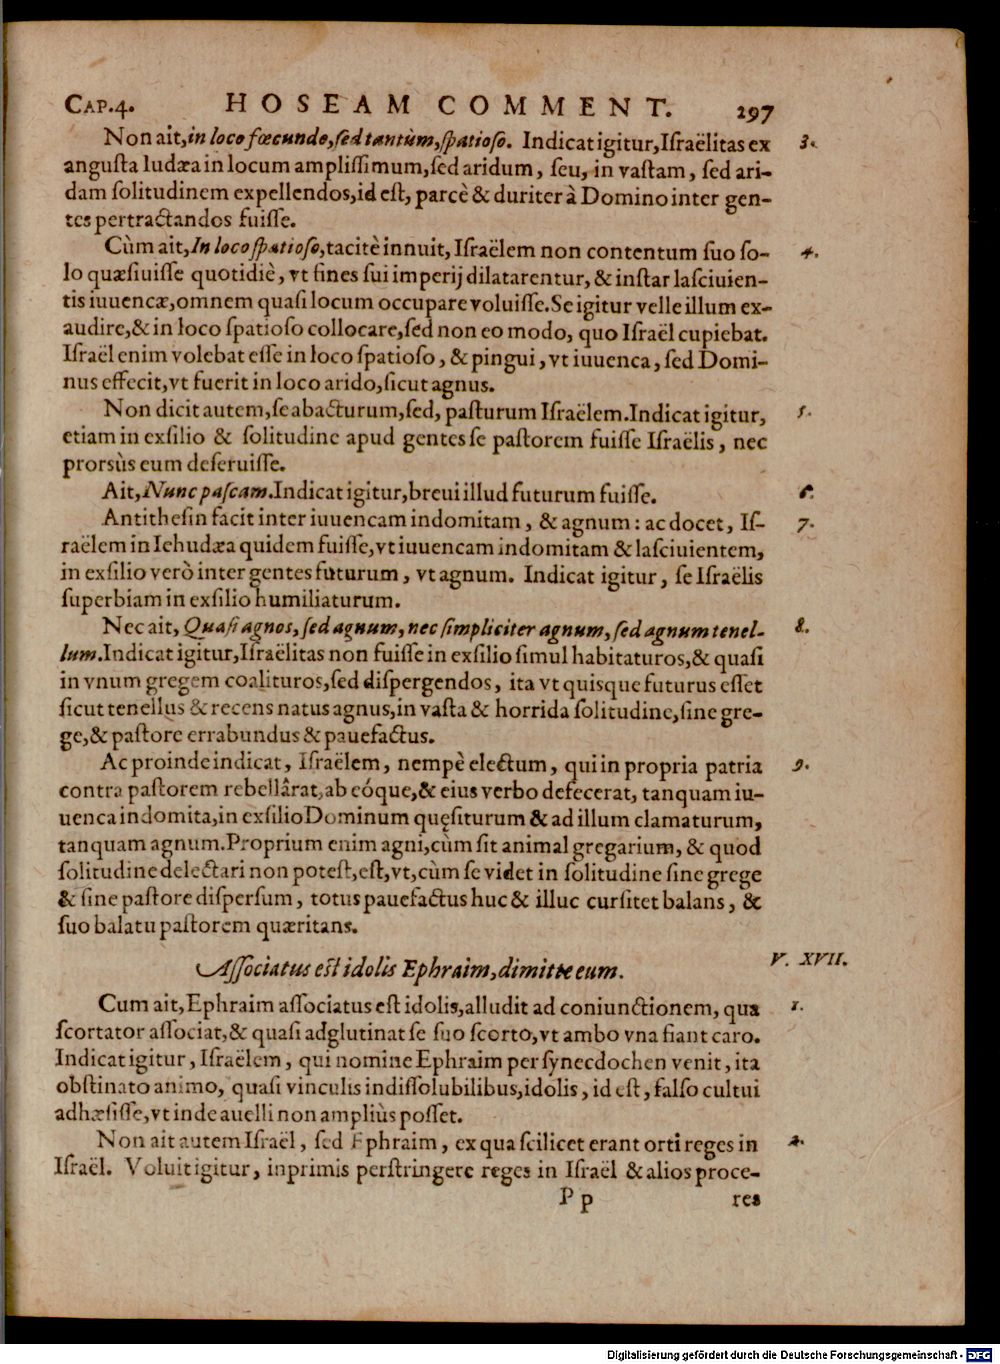 CAP.4. HOSEAM COMMENT. 297
Non ait, in loco fœcundo, sed tantùm, spatioso. Indicat igitur, Israëlitas ex 3.
angusta Iudæa in locum amplissimum, sed aridum, seu, in vastam, sed ari-
dam solitudinem expellendos, id est, parcè & duriter à Domino inter gen-
tes pertractandos fuisse.
Cùm ait, In loco spatioso, tacitè innuit, Israëlem non contentum suo so- 4.
lo quæsiuisse quotidiè, vt fines sui imperij dilatarentur, & instar lasciuien-
tis iuuencæ, omnem quasi locum occupare voluisse. Se igitur velle illum ex-
audire, & in loco spatioso collocare, sed non eo modo, quo Israël cupiebat.
Israël enim volebat esse in loco spatioso, & pingui, vt iuuenca, sed Domi-
nus effecit, vt fuerit in loco arido, sicut agnus.
Non dicit autem, se abacturum, sed, pasturum Israëlem. Indicat igitur, 5.
etiam in exsilio & solitudine apud gentes se pastorem fuisse Israëlis, nec
prorsùs eum deseruisse.
Ait, Nunc pascam. Indicat igitur, breui illud futurum fuisse. 6.
Antithesin facit inter iuuencam indomitam, & agnum: ac docet, Is- 7.
raëlem in Iehudæa quidem fuisse, vt iuuencam indomitam & lasciuientem,
in exsilio verò inter gentes futurum, vt agnum. Indicat igitur, se Israëlis
superbiam in exsilio humiliaturum.
Nec ait, Quasi agnos, sed agnum, nec simpliciter agnum, sed agnum tenel- 8.
lum. Indicat igitur, Israëlitas non fuisse in exsilio simul habitaturos, & quasi
in vnum gregem coalituros, sed dispergendos, ita vt quisque futurus esset
sicut tenellus & recens natus agnus, in vasta & horrida solitudine, sine gre-
ge, & pastore errabundus & pauefactus.
Ac proinde indicat, Israëlem, nempè electum, qui in propria patria 9.
contra pastorem rebellârat, ab eóque, & eius verbo defecerat, tanquam iu-
uenca indomita, in exsilio Dominum quęsiturum & ad illum clamaturum,
tanquam agnum. Proprium enim agni, cùm sit animal gregarium, & quod
solitudine delectari non potest, est, vt, cùm se videt in solitudine sine grege
& sine pastore dispersum, totus pauefactus huc & illuc cursitet balans, &
suo balatu pastorem quæritans.
Associatus est idolis Ephraim, dimitte eum. V. XVII.
Cum ait, Ephraim associatus est idolis, alludit ad coniunctionem, qua 1.
scortator associat, & quasi adglutinat se suo scorto, vt ambo vna fiant caro.
Indicat igitur, Israëlem, qui nomine Ephraim per synecdochen venit, ita
obstinato animo, quasi vinculis indissolubilibus, idolis, id est, falso cultui
adhæsisse, vt inde auelli non ampliùs posset.
Non ait autem Israël, sed Ephraim, ex qua scilicet erant orti reges in 2.
Israël. Voluit igitur, inprimis perstringere reges in Israël & alios proce-
Pp res
Digitalisierung gefördert durch die Deutsche Forschungsgemeinschaft - DFG